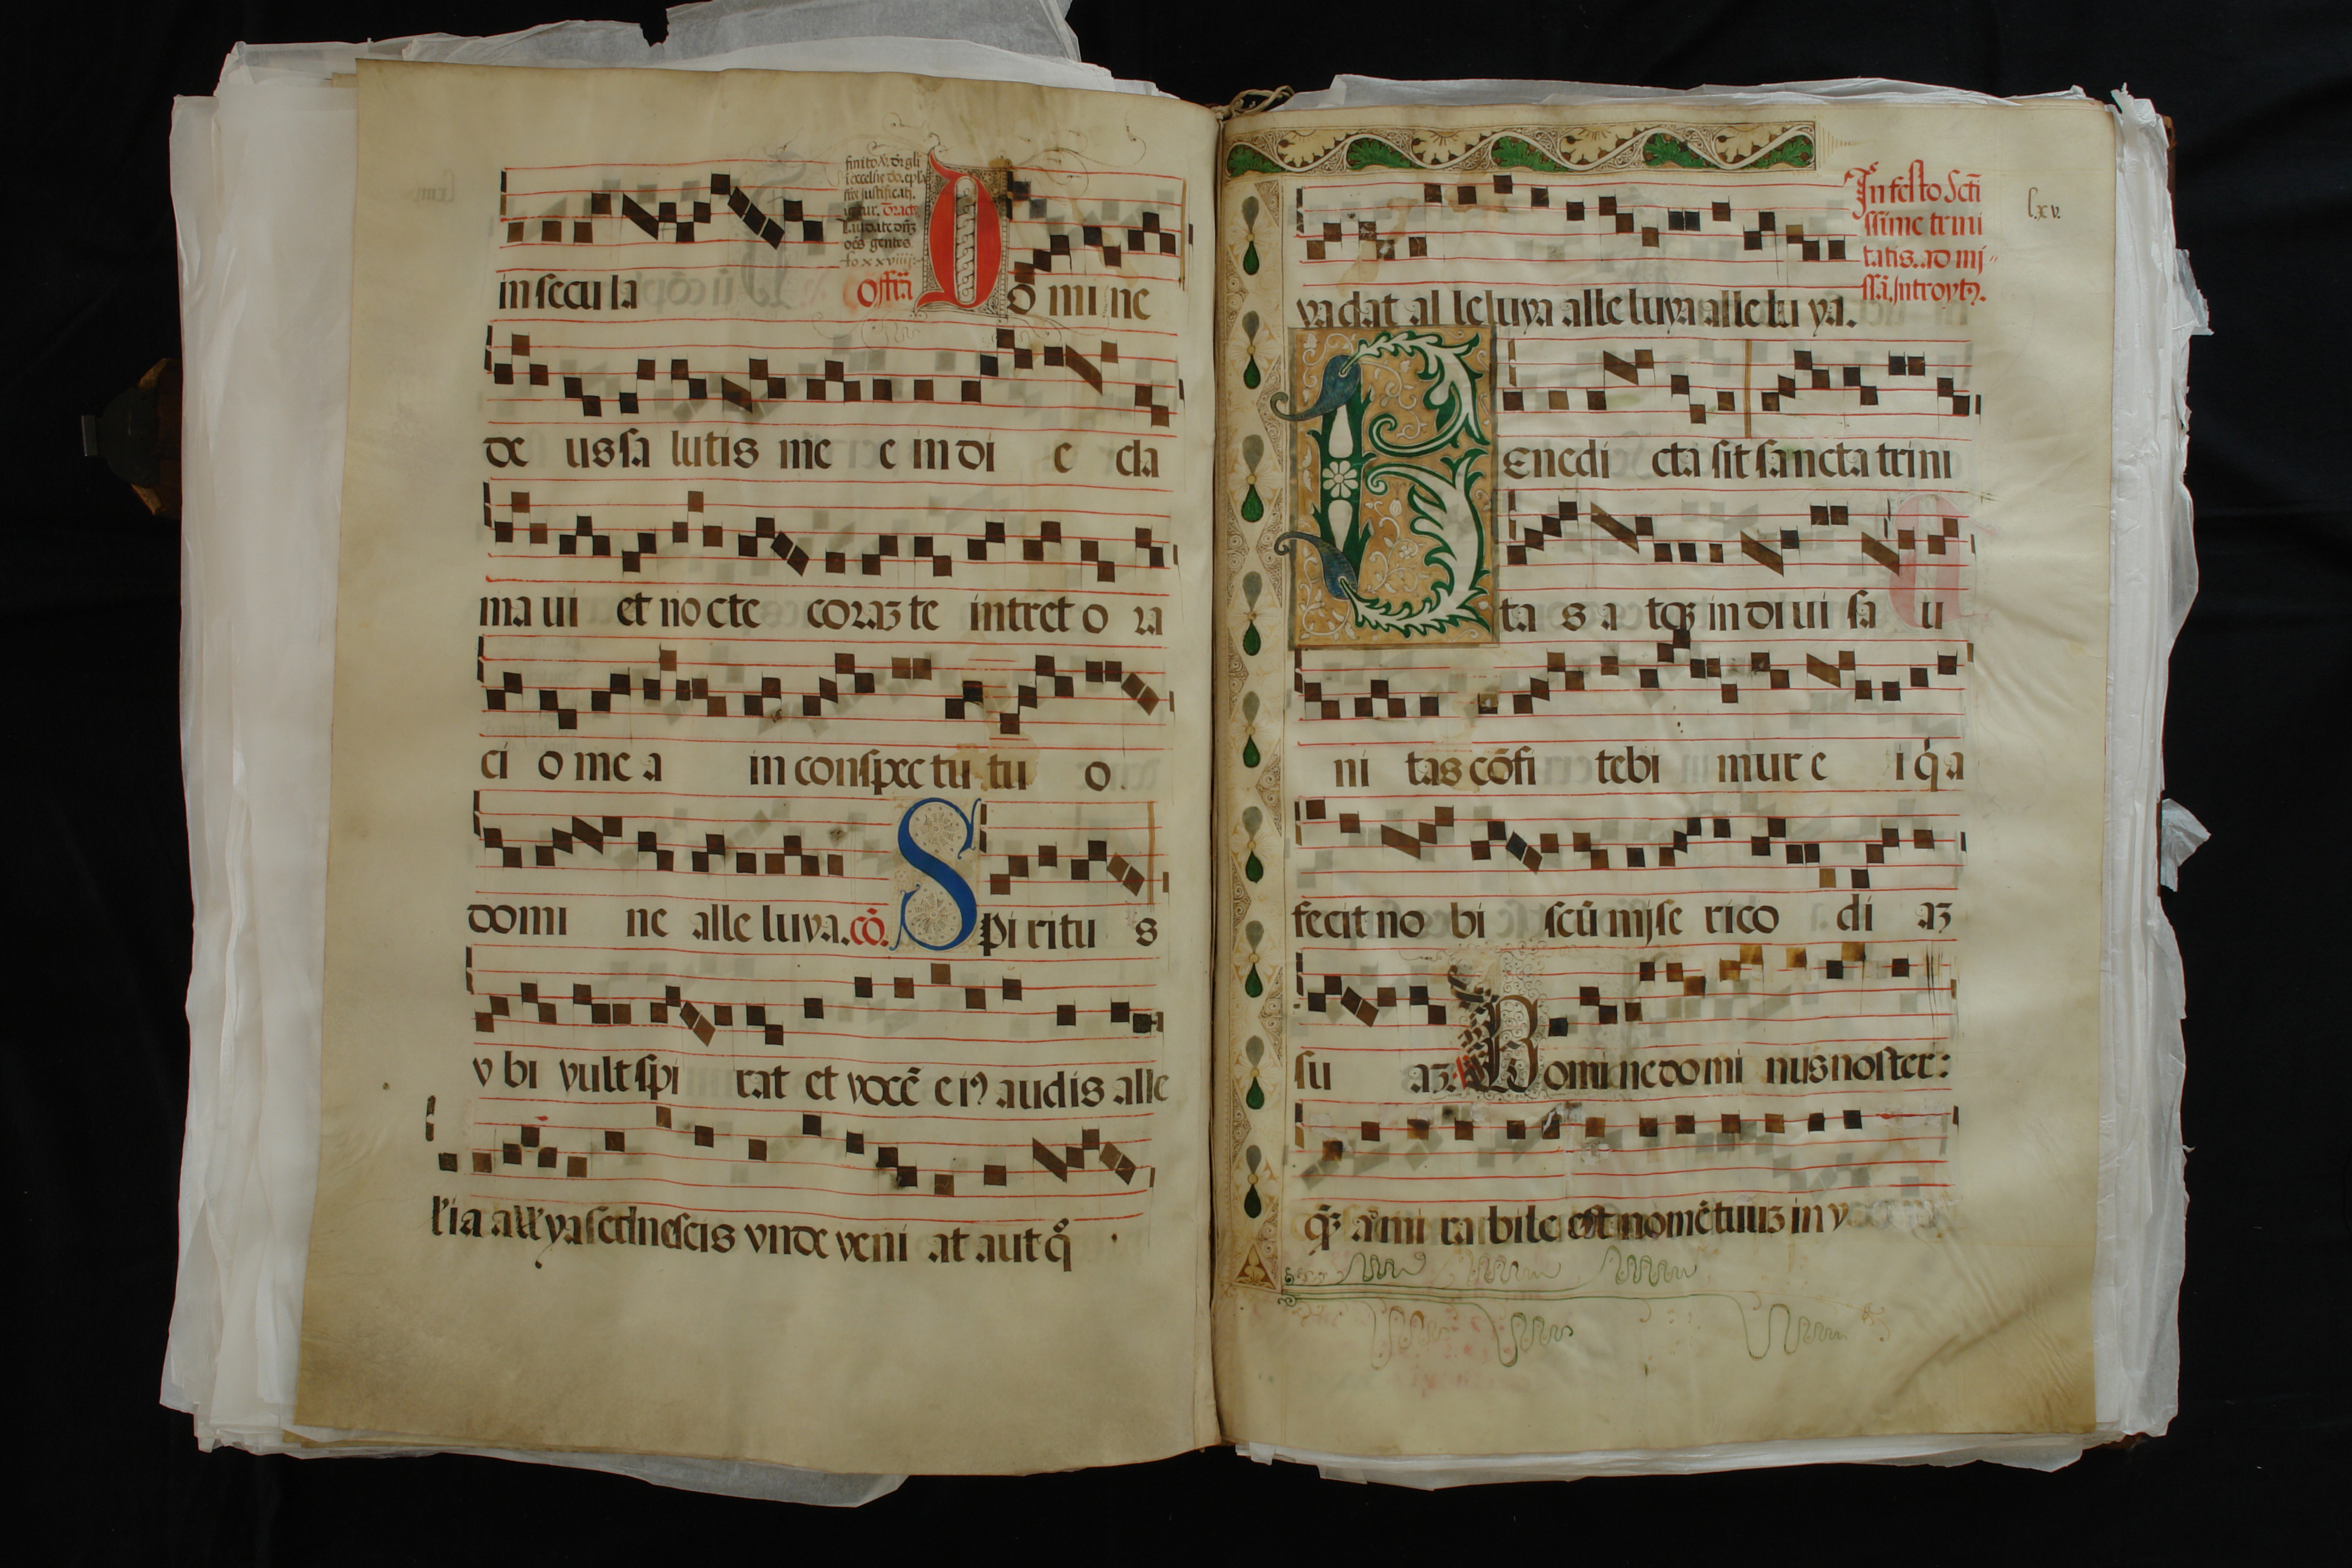 finito v̄. Or gli
Laudate dnȝ
oēs gentes
fo xxviiij
in secu la offr̄a D o mi ne
de us sa lutis me e in di e cla
ma ui et no cte coraȝ te intret o ra
ci o me a in conspec tu tu o
domi ne alle luya. cō. S pi ritu s
v bi vult spi rat et vocē eiꝯ audis alle
l'ia all'ya sed nescis vnde veni at aut q̊
In festo Scti
ssime trini
tatis. ad mi
ssā. Introytꝯ.
lxv.
vadat al leluya alleluya alle lu ya.
B enedi cta sit sancta trini
ta s a tqȝ in di ui sa u
ni tas cōfi tebi mur e i q̓a
fecit no bi scū mise rico di aȝ
su aȝ. D omine domi nus noster:
q̄ȝ a mi rabile est nomē tuuȝ in v